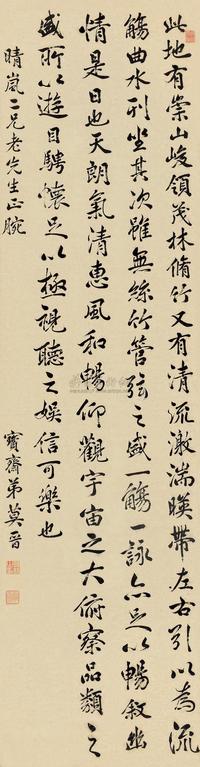 此地有崇山峻領茂林脩竹又有清流激湍暎帶左右引以為流
觴曲水列坐其次雖無絲竹管弦之盛一觴一詠亦足以暢敘幽
情是日也天朗氣清惠風和暢仰觀宇宙之大俯察品類之
盛所以遊目騁懷足以極視聽之娛信可樂也
晴嵐二兄老先生正腕
寶齋弟莫晉